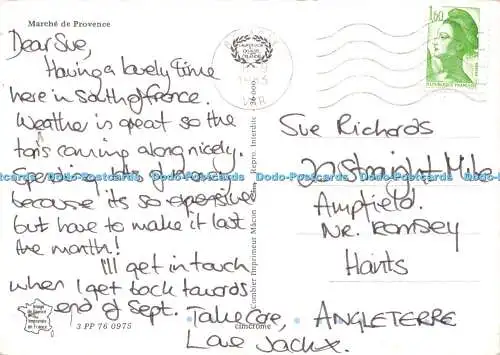 Marché de Provence
Dear Sue,
Having a lovely time
here in South of France.
Weather is great so the
tan's coming along nicely.
Spending lots of money
because its so expensive
but have to make it last
the month!
I'll get in touch
when I get back towards
end of Sept. Take Care,
Love Jackx.
3 PP 76 0975
cimcrome
Combier Imprimeur Macon
Interdite
1,60
REPUBLIQUE FRANÇAISE
Sue Richards
22 Straight Mile
Ampfield.
Nr. Romsey
Hants
ANGLETERRE
Dodo-Postcards Dodo-Postcards Dodo-Postcards Dodo-Postcards